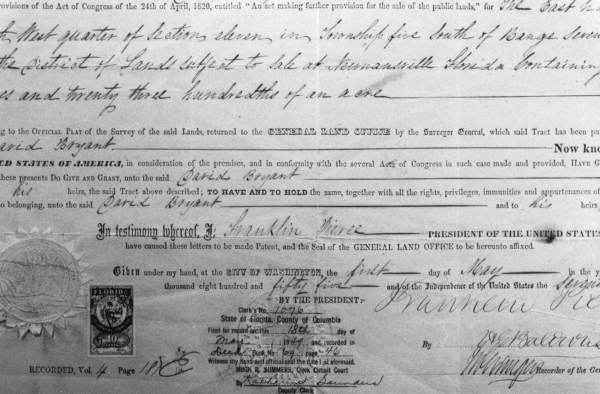 provisions of the Act of Congress of the 24th of April, 1820, entitled "An act making further provision for the sale of the public lands," for The East ha
West quarter of Section eleven in Township five South of Range Seven
the District of Lands subject to sale at Newnansville Florida Containing
es and twenty three hundredths of an acre
ng to the OFFICIAL PLAT of the Survey of the said Lands, returned to the GENERAL LAND OFFICE by the Surveyor General, which said Tract has been pu
avid Bryant Now kno
ED STATES OF AMERICA, in consideration of the premises, and in conformity with the several Acts of Congress in such case made and provided, HAVE G
these presents DO GIVE AND GRANT, unto the said David Bryant
his heirs, the said Tract above described; TO HAVE AND TO HOLD the same, together with all the rights, privileges, immunities and appurtenances of
o belonging, unto the said David Bryant and to his heirs
In testimony whereof, I, Franklin Pierce PRESIDENT OF THE UNITED STATES
have caused these letters to be made Patent, and the Seal of the GENERAL LAND OFFICE to be hereunto affixed.
Given under my hand, at the CITY OF WASHINGTON, the first day of May in the y
thousand eight hundred and fifty five and of the Independence of the United States the
BY THE PRESIDENT:
Franklin Pie
FLORIDA
Clerk's No. 7096
State of Florida, County of Columbia
Filed for record this 18th day of
May 1969 and recorded in
Deed Book No. 69 page 46
Witness my hand and official seal the date aforesaid.
HUGH R. SUMMERS, Clerk Circuit Court
By Katherine Saunders
Deputy Clerk
By
RECORDED, Vol. 4 Page
Recorder of the Ge